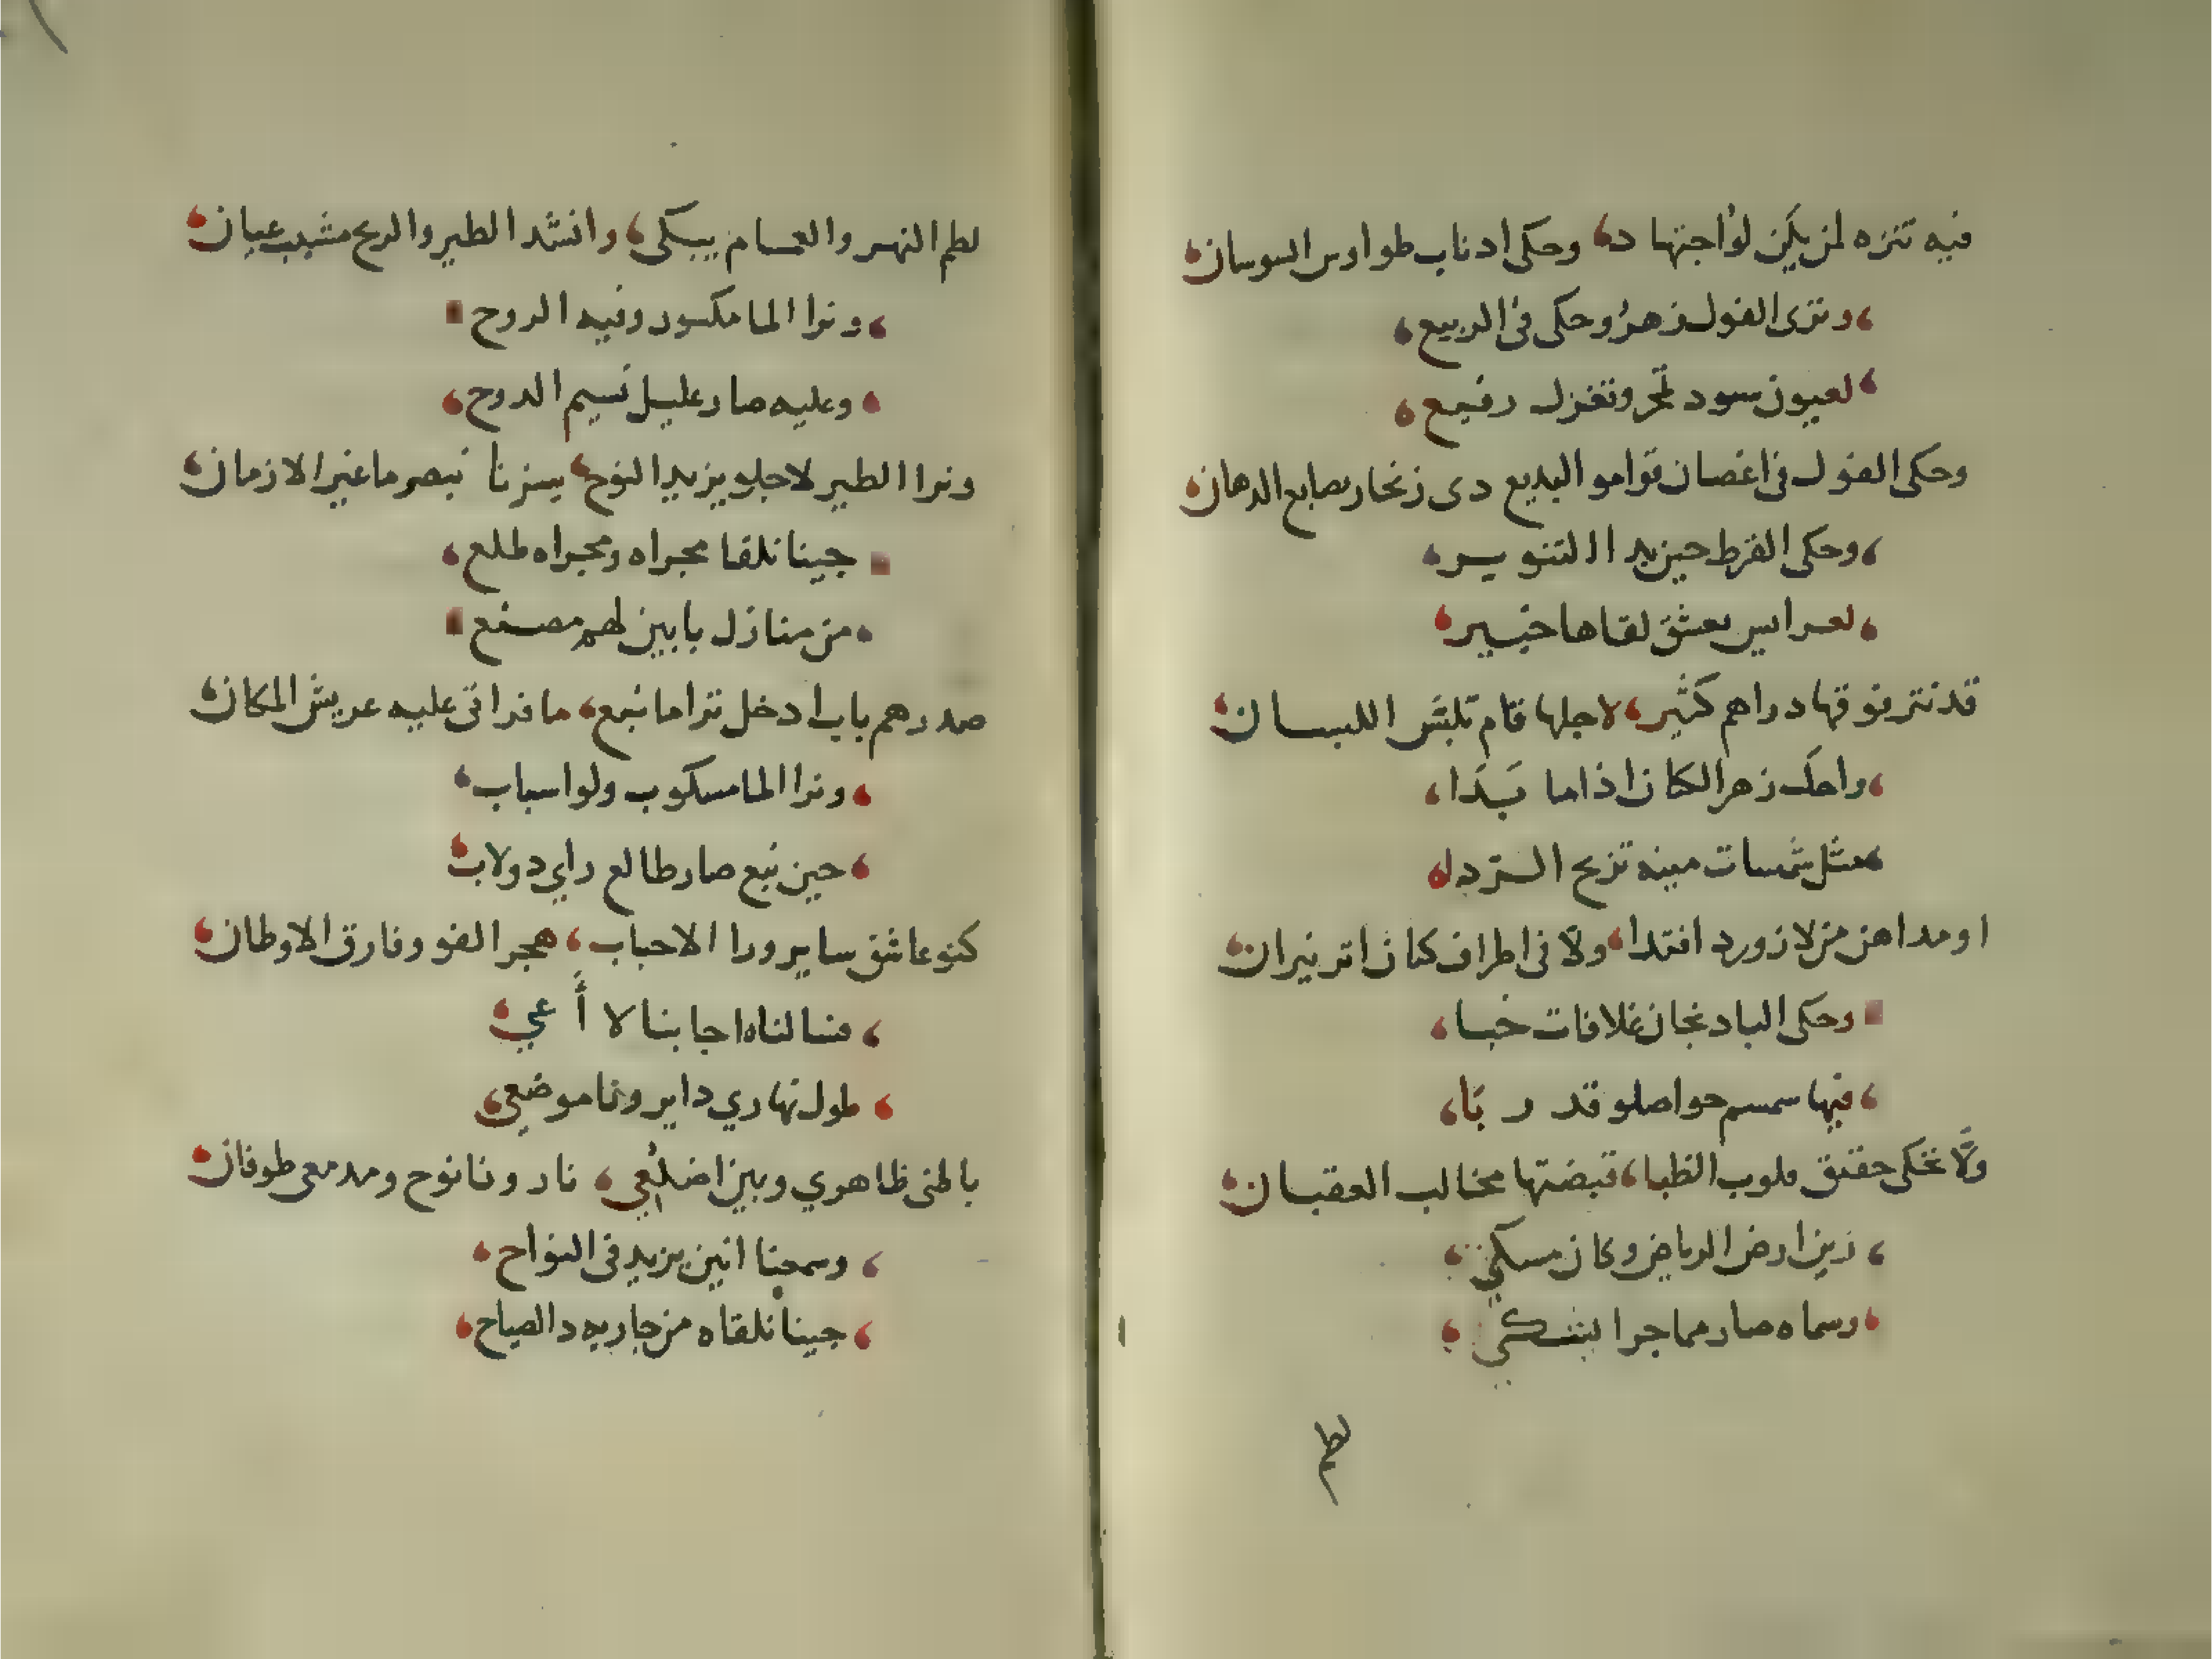 فيه تنزه لمن يكن لو اجتهاد وحكى ادناب طواوس السوسان
وترى الفول زهرو حكى فى الربيع
لعيون سود تمر وتغزل رفيع
وحكى الفول فى اغصان قوامو البديع دى زنجار بصابع الدهان
وحكى القرط حين بدا التنوير
لعرايس بعشق لقاها خبير
قد نتر فوقها دراهم كثير لاجلها قام تلبس اللبسان
واحك زهر الكان اذا ما بدا
مثل شمسات مينه تزيح الردا
او مداهن من لازورد افتدا ولا فى اطراف كان اتر نيران
وحكى البادنجان غلافات خبا
فيها سمسم حواصلو قد ربا
ولا تحكى حقنق قلوب الظبا قبضتها مخالب العقبان
زين ارض الرياض وكان مسكي
وسماه صار مما جرا يشكي
لطم
لطم النهر والغمام يبكى وانشد الطير والريح مشيب عيان
وترا الما مكسور وفيه الروح
وعليه صار عليل نسيم الدوح
وترا الطير لاجلو يزيد النوح سرنا نبصر ما غير الازمان
جينا نلقا مجراه ومجراه طلع
من منازل بابين لهم مصنع
صدرهم باب ادخل ترا ما نبع ما قد اتى عليه عريش المكان
وترا الما مسكوب ولو اسباب
حين نبع صار طالع راي دولاب
كنو عاشق ساير ورا الاحباب هجر الفو وفارق الاوطان
فسالناه اجابنا لا أعي
طول نهاري داير ونا موضعي
باطنى ظاهري وبين اضلعي نار ونا نوح ومدمعى طوفان
وسمعنا انين يزيد فى النواح
جينا نلقاه من جاريه دالصياح